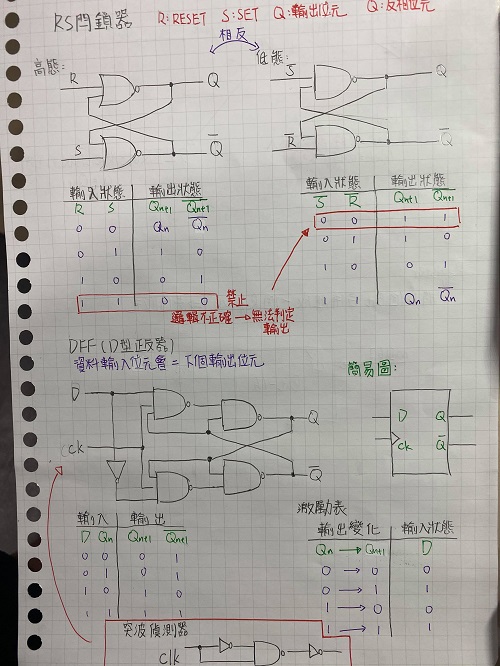 RS閂鎖器 R:RESET S:SET Q:輸出位元 Q:反相位元
相反
高態: 低態:
R Q
S Q̅
S̅ Q
R̅ Q̅
輸入狀態 輸出狀態
R S Qn+1 Q̅n+1
0 0 Qn Q̅n
0 1 1 0
1 0 0 1
1 1 0 0 禁止
輸入狀態 輸出狀態
S̅ R̅ Qn+1 Q̅n+1
0 0 1 1
0 1 1 0
1 0 0 1
1 1 Qn Q̅n
邏輯不正確→無法判定
輸出
DFF (D型正反器)
資料輸入位元會=下個輸出位元
D Q
CK Q̅
簡易圖:
D Q
CK Q̅
輸入 輸出
D Qn Qn+1 Q̅n+1
0 0 0 1
0 1 0 1
1 0 1 0
1 1 1
激勵表
輸出變化 輸入狀態
Qn → Qn+1 D
0 → 0 0
0 → 1 1
1 → 0 0
1 → 1 1
突波偵測器
Clk